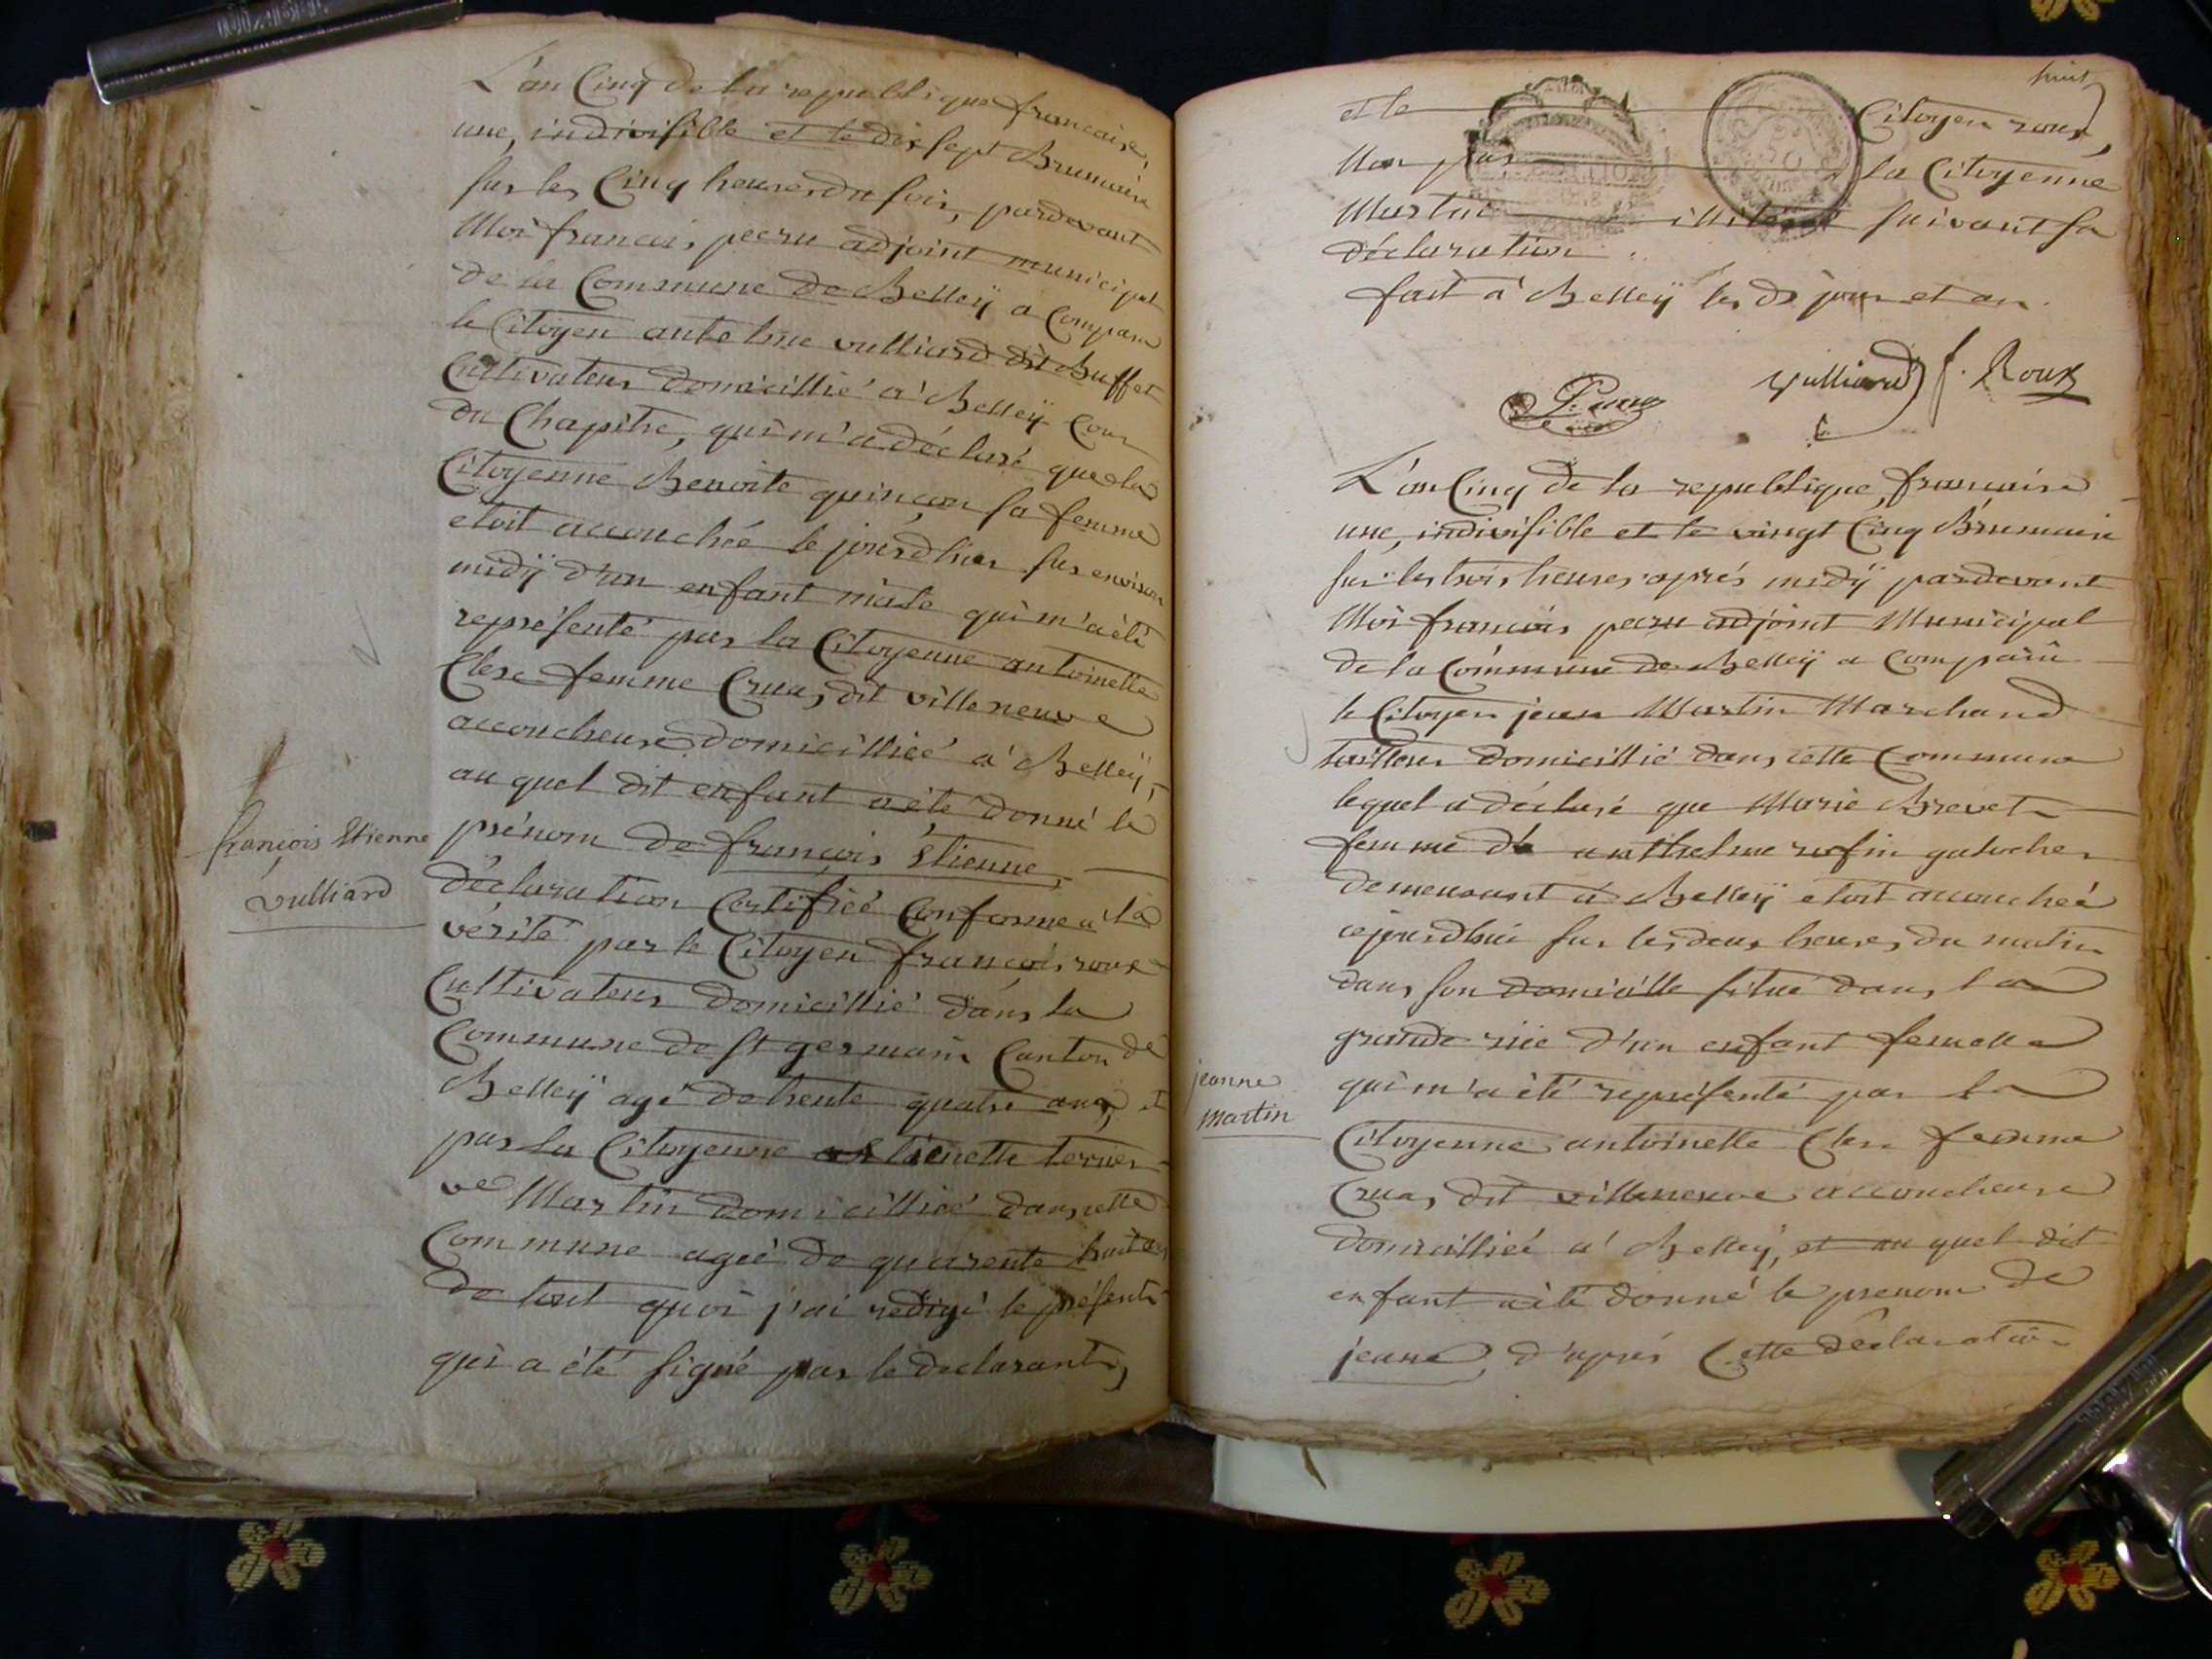 L'an Cinq de la republique francaise,
une, indivisible et le dix sept Brumaire
sur les Cinq heures du soir, pardevant
Moi francois pecru adjoint municipal
de la Commune de Belleÿ a Comparu
le Citoyen antelme vulliard dit Buffet
Cultivateur domicillié a Belleÿ Cour
du Chapitre, qui m'a déclaré que la
Citoyenne Benoite quinson sa femme
etoit accouchée le jourd'hier sur environ
midÿ d'un enfant mâle qui m'a été
représenté par la Citoyenne antoinette
Clerc femme Cruas dit villeneuve
accoucheuse domicilliée a Belleÿ,
au quel dit enfant a été donné le
françois Etienne
vulliard
prénom de françois Étienne,
déclaration Certifiée Conforme a la
vérité par le Citoyen françois roux
Cultivateur domicillié dans la
Commune de St germain Canton de
Belleÿ agé de trente quatre ans, et
par la Citoyenne tienette
ve Martin domicilliée dans cette
Commune agée de quarente huit ans
de tout quoi j'ai redigé le présent
qui a été signé par le declarant,
huit
et le Citoyen roux,
Non pas la Citoyenne
Martin illiterée suivant sa
déclaration.
fait a Belleÿ les ds jour et an.
Vulliard f. Roux
Pecru
L'an Cinq de la republique francaise
une, indivisible et le vingt Cinq Brumaire
sur les trois heures aprés midÿ pardevant
Moi francois pecru adjoint Municipal
de la Commune de Belleÿ a Comparu
le Citoyen jean Martin Marchand
tailleur domicillié dans cette Commune
lequel a déclaré que Marie Brevet
femme d' anthelme rufin galoche
demeurant a Belleÿ etoit accouchée
cejourd'hui sur les deux heures du matin
dans son domicille situé dans la
grande rüe d'un enfant femelle
jeanne
martin
qui m'a été représenté par la
Citoyenne antoinette Clerc femme
Cruas dit villeneuve accoucheuse
domicilliée a Belleÿ, et au quel dit
enfant a été donné le prenom de
jeanne, d'aprés Cette déclaration